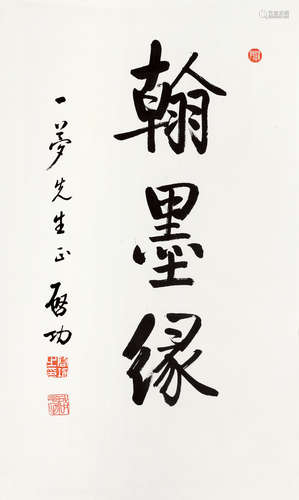 翰墨缘
一梦先生正 启功